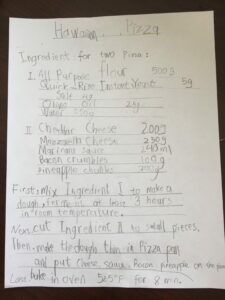 Hawaiian Pizza
Ingredient for two Pizza:
I. All Purpose flour 500g
Quick-Rise Instant Yeast 5g
Salt
Olive Oil 25g
Water 350g
II Cheddar Cheese 200g
Mozzarella Cheese 250g
Marinara Sauce
Bacon crumbles 100g
Pineapple chunks
First, mix Ingredient I to make a
dough, ferment at least 3 hours
in room temperature.
Now, cut Ingredient II to small pieces.
Then, make the dough thin in Pizza pan
and put cheese, sauce, Bacon pineapple on the
Last bake in oven 525°F for 8 min.